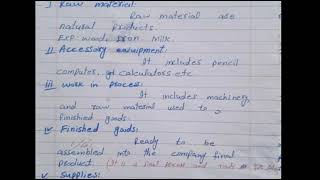 I Raw material:
Raw material are
natural products.
Exp: wood, Iron Milk.
II Accessory equipment:
It includes pencil
computer, calculators etc
III work in process:
It includes machinery,
and raw material used to
finished goods.
IV Finished goods:
Ready to be
assembled into the company final
product. (It is a final
V Supplies: